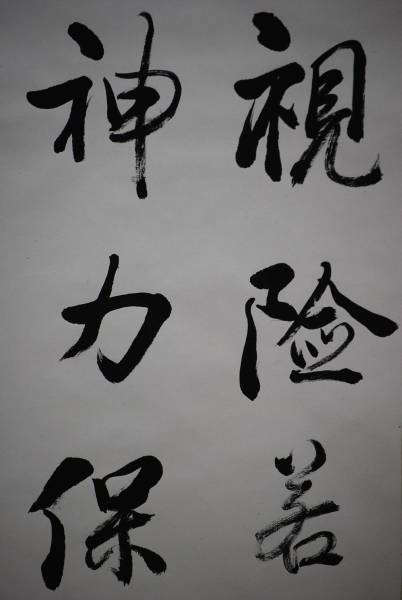 視险若
神力保